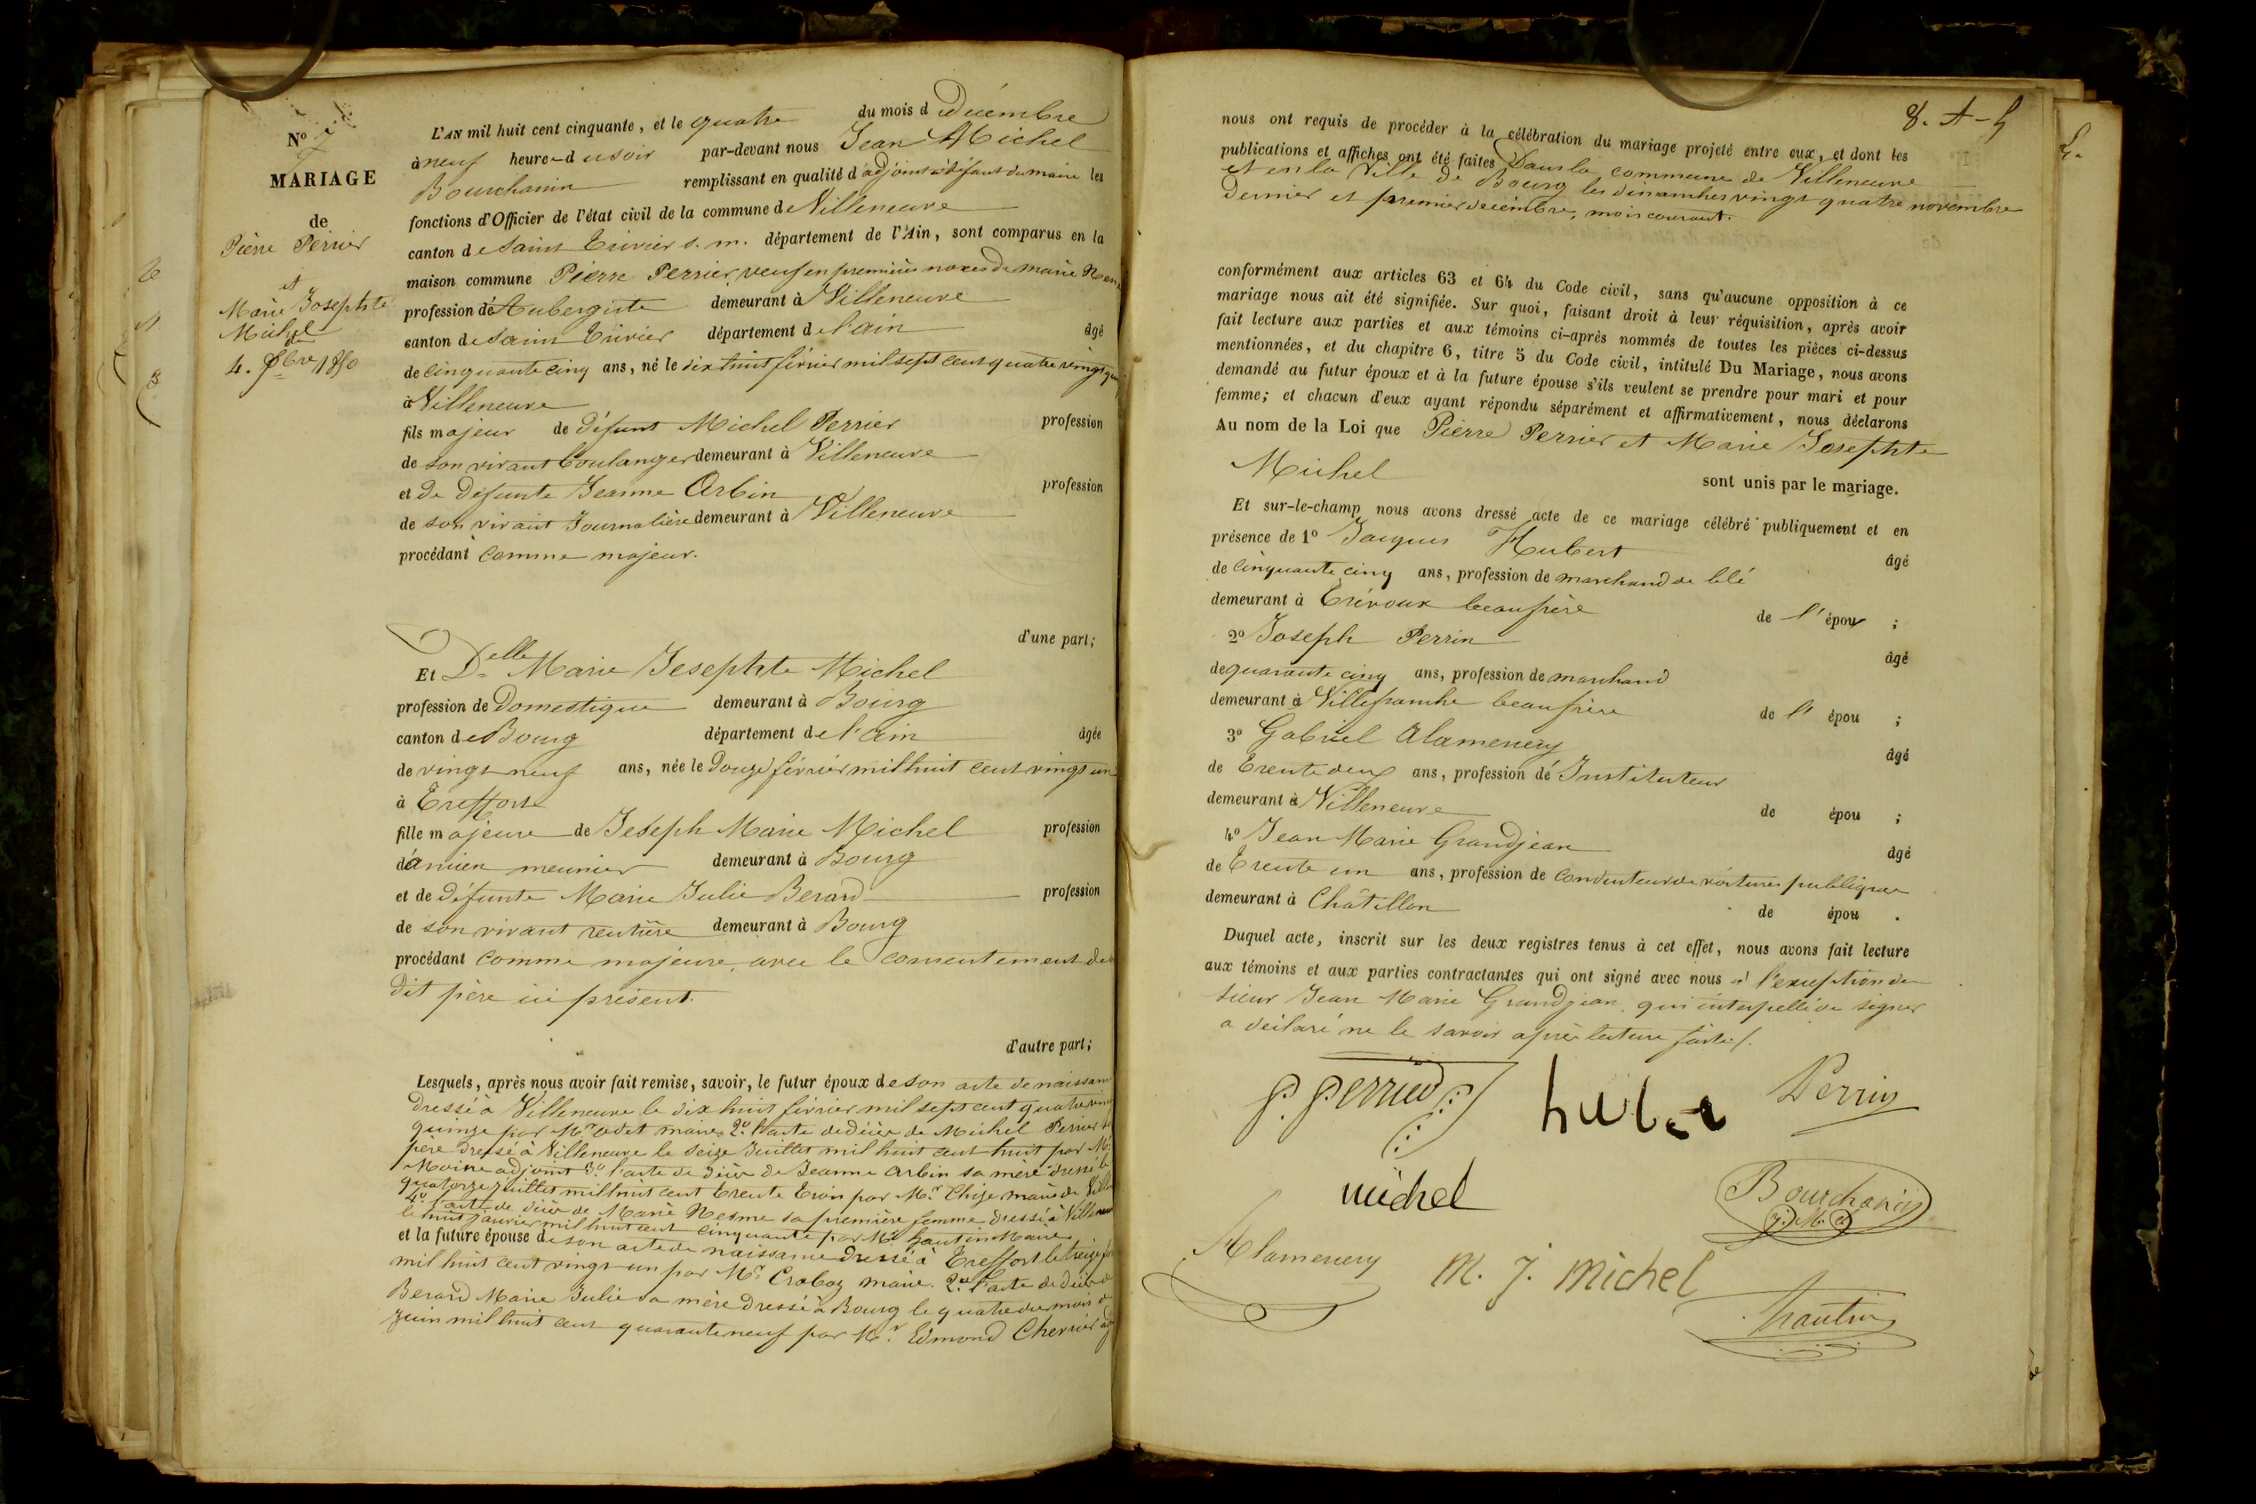 N°
MARIAGE
de
Pierre Perrier
et
Marie Josephte
Michel
4. Xbre 1850
L'AN mil huit cent cinquante, et le quatre du mois d décembre
à neuf heures du soir par-devant nous Jean Michel
Bourchanin remplissant en qualité d'adjoint à défaut du maire les
fonctions d'Officier de l'état civil de la commune de Villeneuve
canton de Saint Trivier s. m. département de l'Ain, sont comparus en la
maison commune Pierre Perrier, veuf en premières noces de Marie
profession de Aubergiste demeurant à Villeneuve
canton de Saint Trivier département de l'ain âgé
de cinquante cinq ans, né le dix huit février mil sept cent quatre vingt
à Villeneuve
fils majeur de défunt Michel Perrier profession
de son vivant boulanger demeurant à Villeneuve
et de défunte Jeanne Arbin profession
de son vivant Journalière demeurant à Villeneuve
procédant comme majeur.
d'une part;
Et Delle Marie Josephte Michel
profession de Domestique demeurant à Bourg
canton de Bourg département de l'ain âgée
de vingt neuf ans, née le douze février mil huit cent vingt un
à Treffort
fille majeure de Joseph Marie Michel profession
d'ancien meunier demeurant à Bourg
et de défunte Marie Julie Berard profession
de son vivant rentière demeurant à Bourg
procédant comme majeure, avec le consentement du
dit père ici présent.
d'autre part;
Lesquels, après nous avoir fait remise, savoir, le futur époux de son acte de naissance
dressé à Villeneuve le dix huit février mil sept cent quatre vingt
quinze par Mr Odet maire 2° l'acte de décès de Michel Perrier
père dressé à Villeneuve le seize Juillet mil huit cent huit par Mr
Moine adjoint 3° l'acte de décès de Jeanne Arbin sa mère dressé le
quatorze juillet mil huit cent trente trois par Mr Chize maire de
4° l'acte de décès de Marie Nesme sa première femme dressé à Villeneuve
le huit janvier mil huit cent cinquante par Mr hautin Maire
et la future épouse de son acte de naissance dressé à Treffort le treize
mil huit cent vingt un par Mr Craboz maire. 2° l'acte de décès de
Berard Marie Julie sa mère dressé à Bourg le quatre du mois de
juin mil huit cent quarante neuf par Mr Edmond Chevrier
8. A-h
nous ont requis de procéder à la célébration du mariage projeté entre eux, et dont les
publications et affiches ont été faites Dans la commune de Villeneuve
et en la Ville de Bourg les dimanches vingt quatre novembre
dernier et premier decembre, mois courant.
conformément aux articles 63 et 64 du Code civil, sans qu'aucune opposition à ce
mariage nous ait été signifiée. Sur quoi, faisant droit à leur réquisition, après avoir
fait lecture aux parties et aux témoins ci-après nommés de toutes les pièces ci-dessus
mentionnées, et du chapitre 6, titre 5 du Code civil, intitulé Du Mariage, nous avons
demandé au futur époux et à la future épouse s'ils veulent se prendre pour mari et pour
femme; et chacun d'eux ayant répondu séparément et affirmativement, nous déclarons
Au nom de la Loi que Pierre Perrier et Marie Josephte
Michel sont unis par le mariage.
Et sur-le-champ nous avons dressé acte de ce mariage célébré publiquement et en
présence de 1° Jacques Hubert âgé
de cinquante cinq ans, profession de marchand de blé
demeurant à Trévoux beaufrère de l'époux ;
2° Joseph Perrin âgé
de quarante cinq ans, profession de marchand
demeurant à Villefranche beaufrère de l'épou ;
3° Gabriel Alamenery âgé
de Trente deux ans, profession de Instituteur
demeurant à Villeneuve de épou ;
4° Jean Marie Grandjean âgé
de Trente un ans, profession de conducteur de voitures publiques
demeurant à Châtillon de épou .
Duquel acte, inscrit sur les deux registres tenus à cet effet, nous avons fait lecture
aux témoins et aux parties contractantes qui ont signé avec nous à l'exception de
sieur Jean Marie Grandjean qui interpellé de signer
a déclaré ne le savoir après lecture faite /.
P. perrier
huber
Perrin
michel
Bourchanin
J. M. a
Alamenery
M. J. Michel
hautin